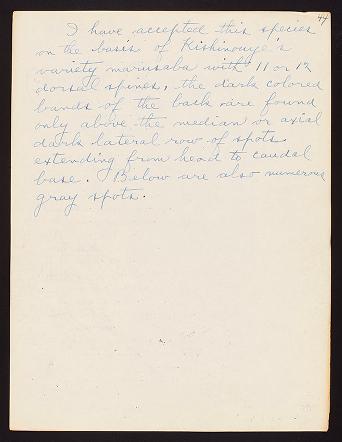 44
I have accepted this species
on the basis of Kishinouye's
variety marusaba with 11 or 12
dorsal spines, the dark colored
bands of the back are found
only above the median or axial
dark lateral row of spots
extending from head to caudal
base. Below are also numerous
gray spots.